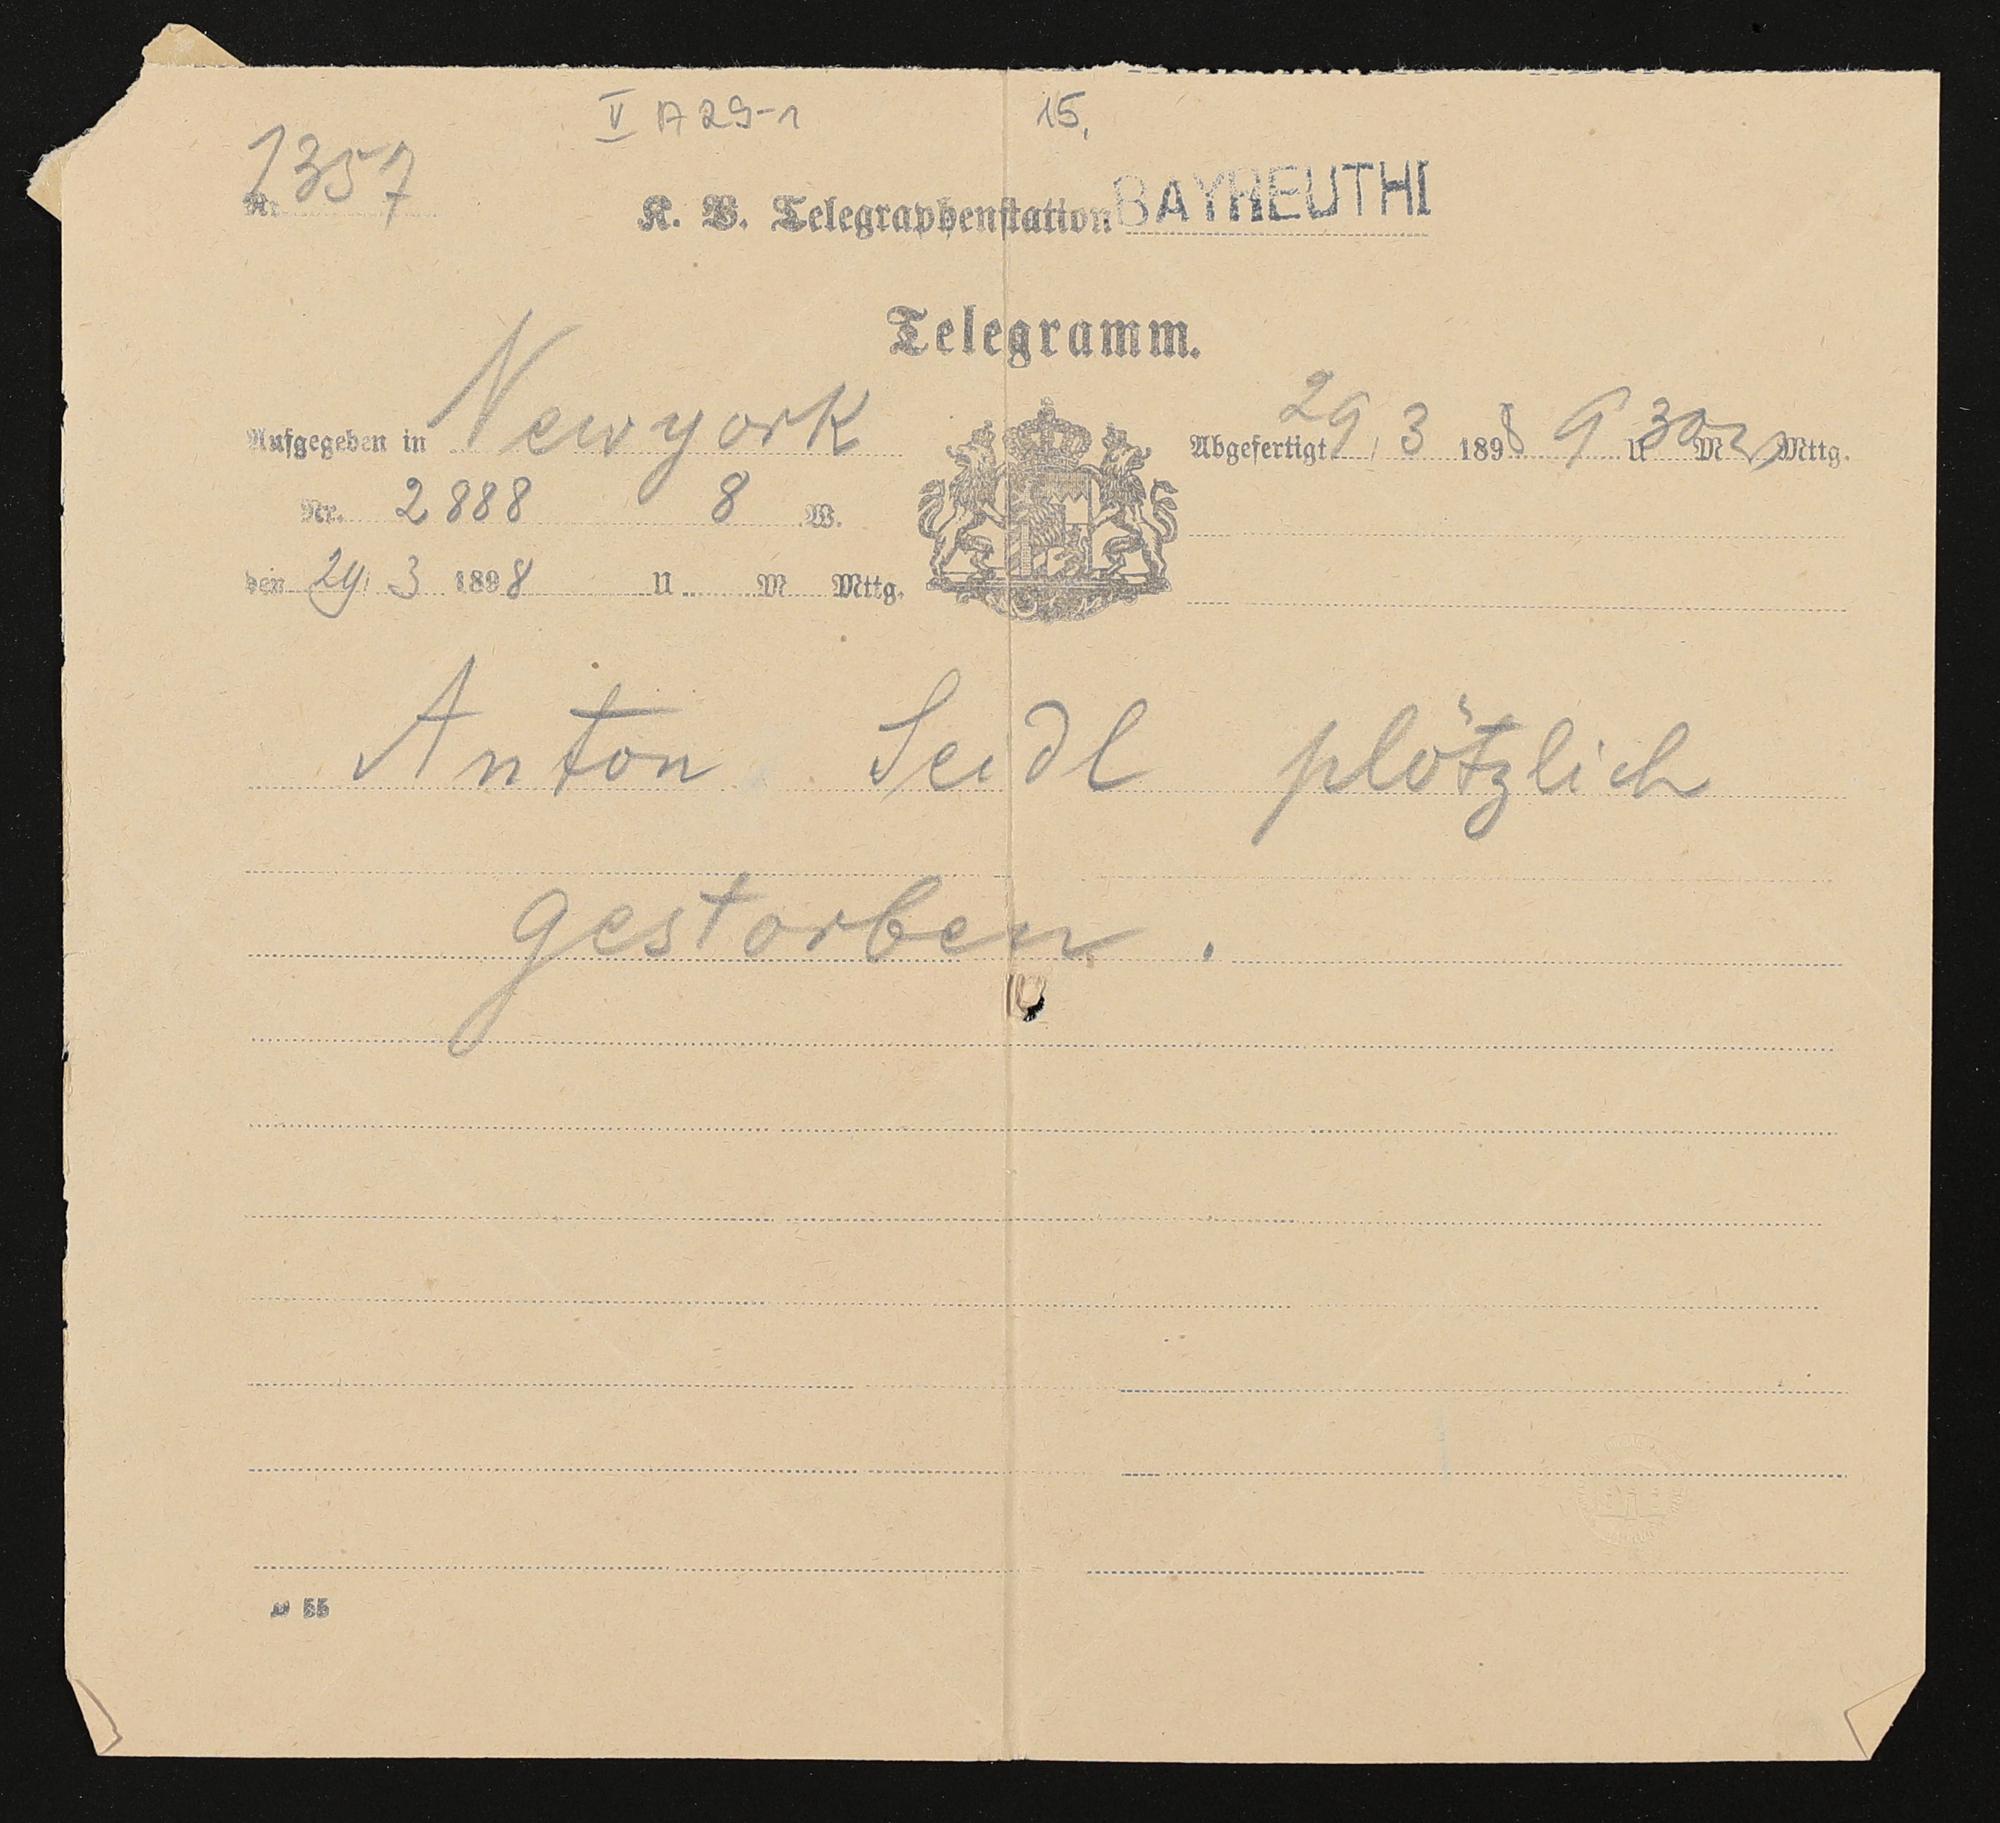 V A 29-1 15,
Nr. 1357
K. B. Telegraphenstation BAYREUTH I
Telegramm.
Aufgegeben in Newyork
Abgefertigt 29. 3 1898 9 U 30 M Mttg.
Nr. 2888 8 W.
den 29. 3 1898 U M Mttg.
Anton Seidl plötzlich
gestorben.
55